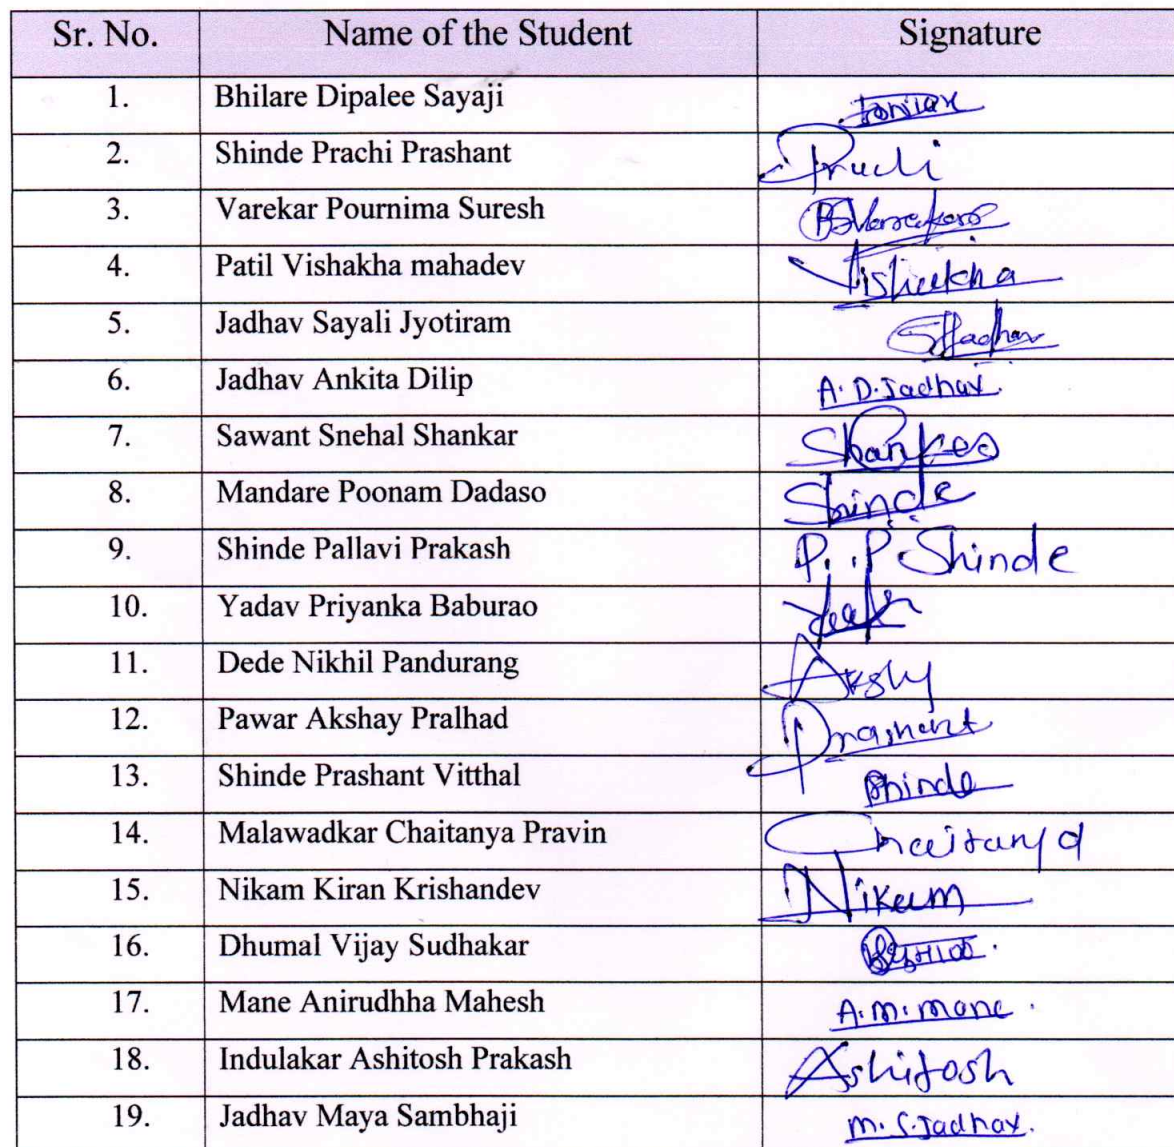 Sr. No. Name of the Student Signature
1. Bhilare Dipalee Sayaji
2. Shinde Prachi Prashant Prachi
3. Varekar Pournima Suresh
4. Patil Vishakha mahadev Vishakha
5. Jadhav Sayali Jyotiram SJJadhav
6. Jadhav Ankita Dilip A. D. Jadhav.
7. Sawant Snehal Shankar
8. Mandare Poonam Dadaso Shinde
9. Shinde Pallavi Prakash P. P. Shinde
10. Yadav Priyanka Baburao
11. Dede Nikhil Pandurang Akshy
12. Pawar Akshay Pralhad Prashant
13. Shinde Prashant Vitthal Shinde
14. Malawadkar Chaitanya Pravin Chaitanya
15. Nikam Kiran Krishandev Nikam
16. Dhumal Vijay Sudhakar
17. Mane Anirudhha Mahesh A. m. mane.
18. Indulakar Ashitosh Prakash Ashitosh
19. Jadhav Maya Sambhaji m. S. Jadhav.